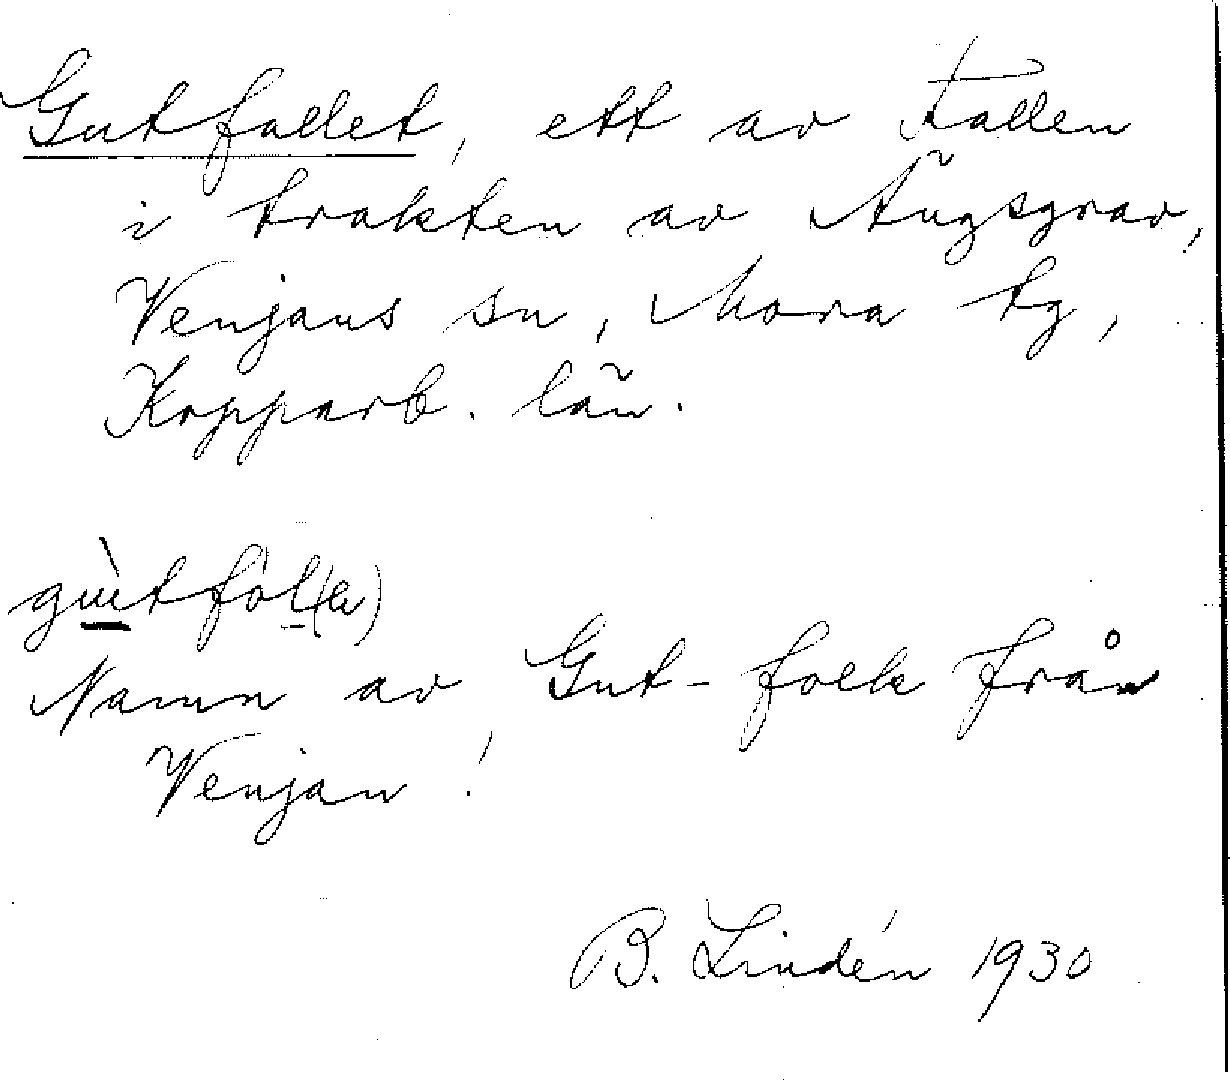 Gutfallet, ett av Fallen
i trakten av Ängsgrav,
Venjans sn, Mora tg,
Kopparb. län.
Namn av Gut- folk från
Venjan!
B. Lindén 1930